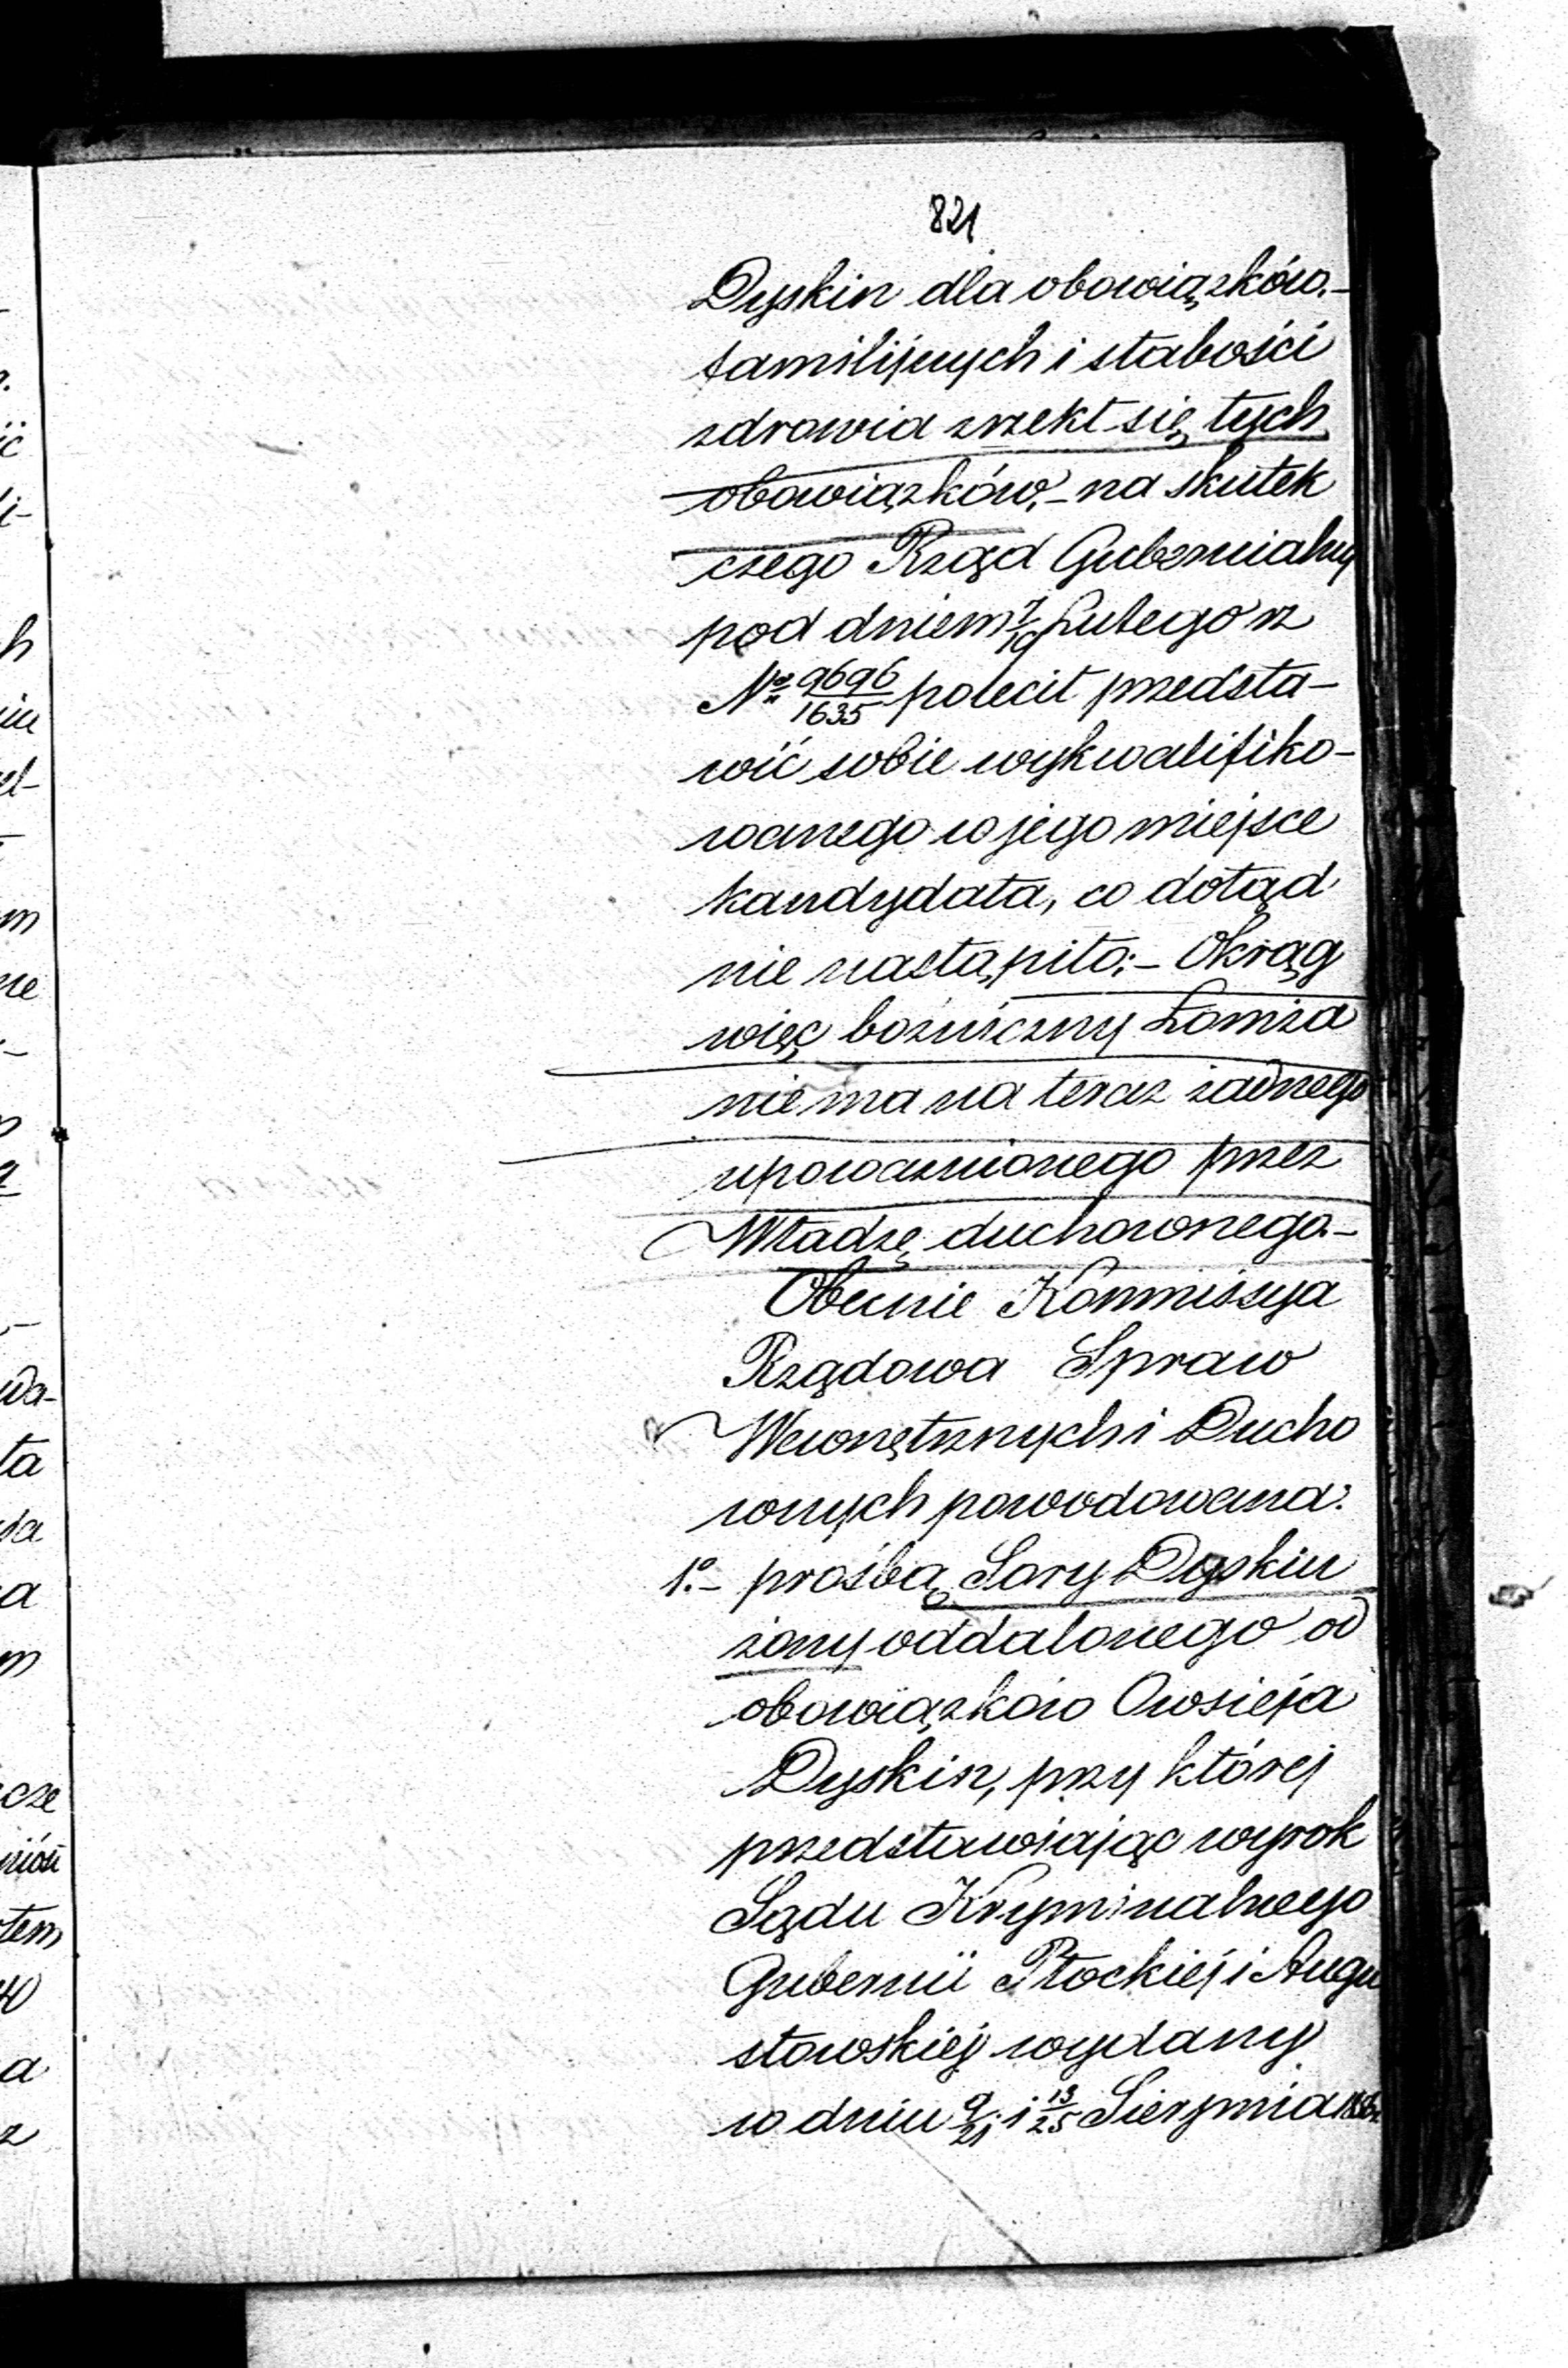 821
Dyskin dla obowiązków.-
familijnych i słabości
zdrowia zrzekł się tych
obowiązków, - na skutek
czego Rząd Gubernialny
pod dniem 7/19 Lutego rz
№ 9696/1635 polecił przedsta-
wić sobie wykwalifiko-
wanego w jego miejsce
kandydata, co dotąd
nie nastąpiło; - Okrąg
więc bożniczny Łomża
nie ma na teraz żadnego
upoważnionego przez
Władzę duchownego. -
Obecnie Kommissya
Rządowa Spraw
Wewnętrznych i Ducho
wnych powodowana:
1º.- prośbą Sory Dyskin
żony oddalonego od
obowiązków Owsieja
Dyskin, przy której
przedstawiając wyrok
Sądu Kryminalnego
Gubernii Płockiej i Augu
stowskiej wydany
w dniu 9/21 i 13/25 Sierpnia